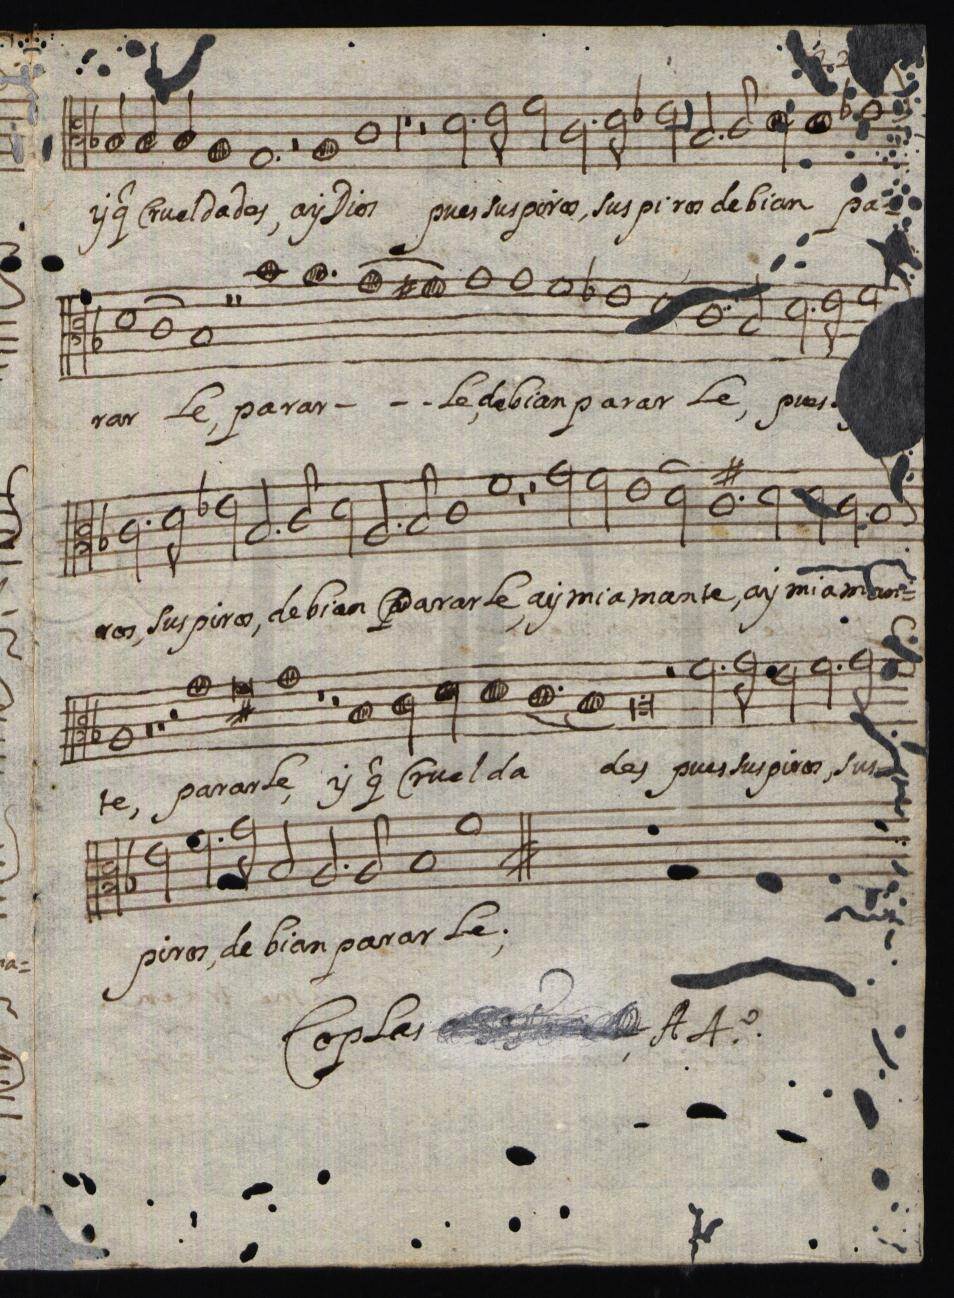 y q̃ Crueldades, ay Dios pues suspiros, suspiros debian pa=
rar le, parar - - - le, debian parar le, pues
ros, suspiros, debian pararle, ay mi amante, ay mi aman=
te, pararle, y q̃ Cruelda des pues suspiros, sus=
piros, debian parar le;
Coplas A 4º.